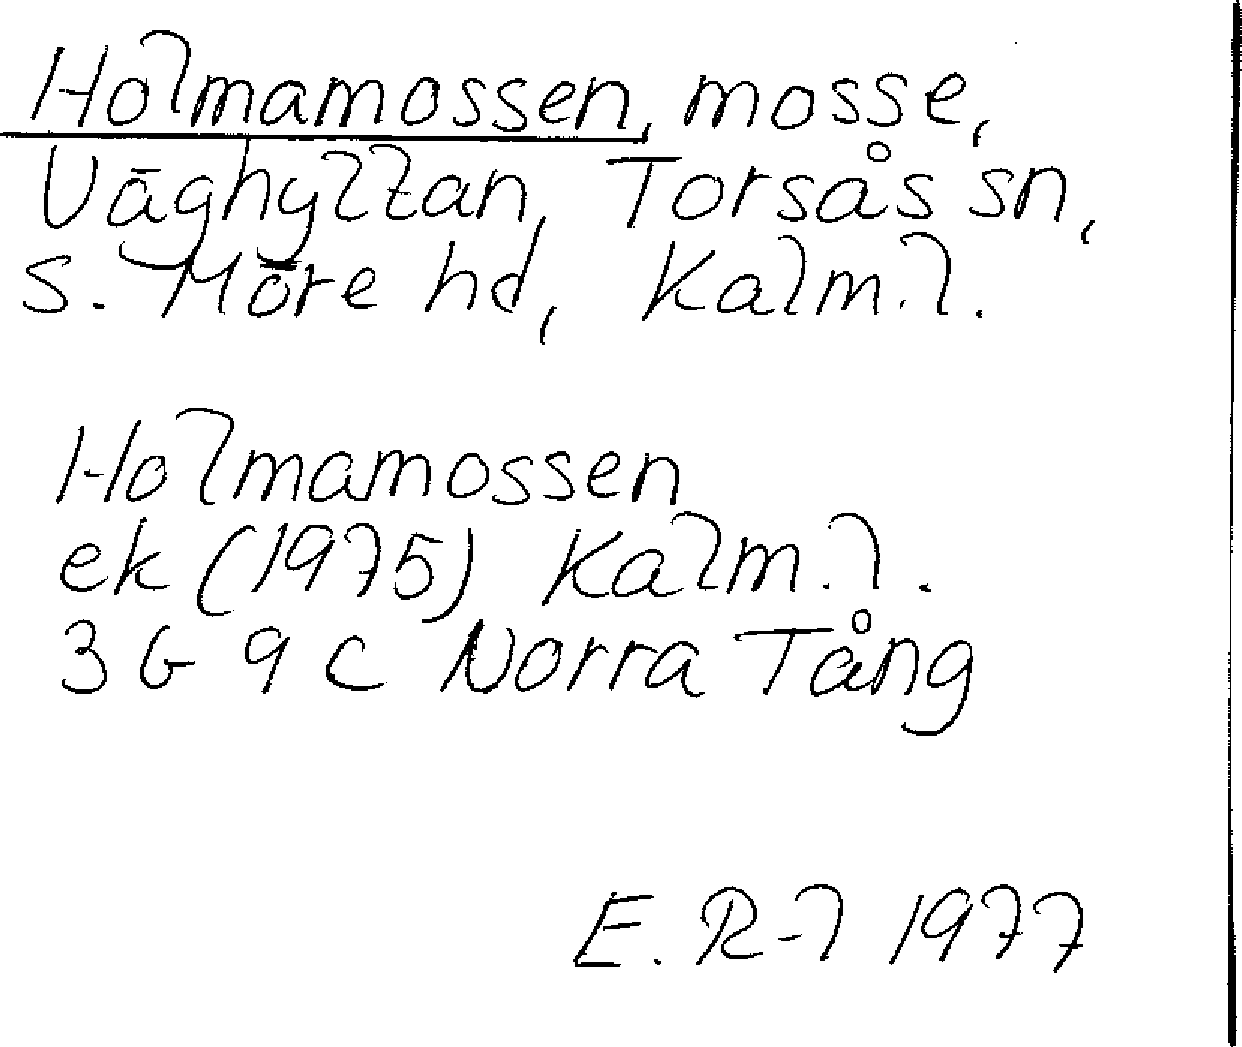 Holmamossen, mosse,
Väghyltan, Torsås sn,
S. Möre hd, Kalm.l.
Holmamossen
ek (1975) Kalm.l.
3 G 9 C Norra Tång
E. R-l 1977